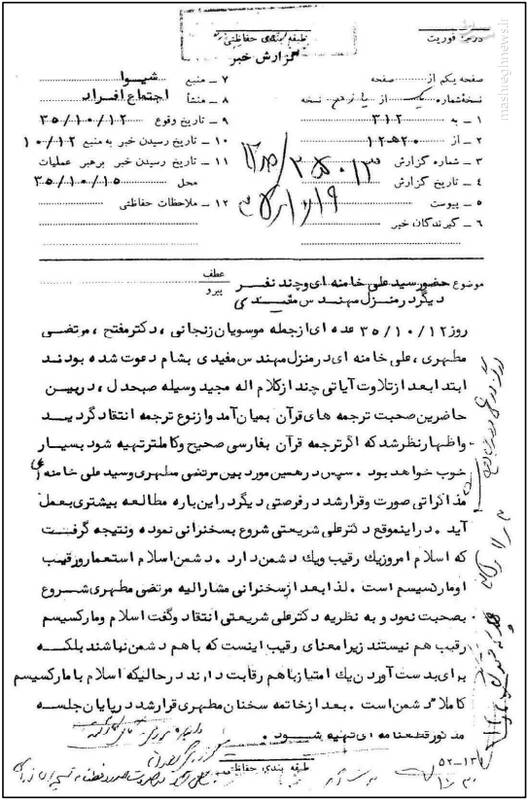 درجه فوریت
طبقه بندی حفاظتی
گزارش خبر
صفحه یکم از صفحه
نسخه شماره یک از یازدهم نسخه
۱ – به ۳۱۲
۲ – از ۲۰ ه‍ ۱۲
۳ – شماره گزارش
۴ – تاریخ گزارش
۵ – پیوست
۶ – گیرندگان خبر
۷ – منبع شیوا
۸ – منشأ اجتماع افراد
۹ – تاریخ وقوع ۳۵/۱۰/۱۲
۱۰ – تاریخ رسیدن خبر به منبع ۱۰/۱۲
۱۱ – تاریخ رسیدن خبر برهبر عملیات
محل ۳۵/۱۰/۱۵
۱۲ – ملاحظات حفاظتی
موضوع حضور سید علی خامنه ای و چند نفر
دیگر در منزل مهندس مفیدی
عطف
پیرو
روز ۳۵/۱۰/۱۲ عده ای از جمله موسویان زنجانی ، دکتر مفتح ، مرتضی
مطهری ، علی خامنه ای در منزل مهندس مفیدی بشام دعوت شده بودند
ابتدا بعد از تلاوت آیاتی چند از کلام اله مجید وسیله صبحدل ، در بین
حاضرین صحبت ترجمه های قرآن بمیان آمد و از نوع ترجمه انتقاد گردید
و اظهار نظر شد که اگر ترجمه قرآن بفارسی صحیح و کاملتر تهیه شود بسیار
خوب خواهد بود . سپس در همین مورد بین مرتضی مطهری و سید علی خامنه ای
مذاکراتی صورت و قرار شد در فرصتی دیگر در این باره مطالعه بیشتری بعمل
آید . در اینموقع دکتر علی شریعتی شروع بسخنرانی نموده و نتیجه گرفت
که اسلام امروز یک رقیب و یک دشمن دارد . دشمن اسلام استعمار و رقیب
او مارکسیسم است . لذا بعد از سخنرانی مشارالیه مرتضی مطهری شروع
بصحبت نمود و به نظریه دکتر علی شریعتی انتقاد و گفت اسلام و مارکسیسم
رقیب هم نیستند زیرا معنای رقیب اینست که با هم دشمن نباشند بلکه
برای بدست آوردن یک امتیاز با هم رقابت دارند در حالیکه اسلام با مارکسیسم
کاملا" دشمن است . بعد از خاتمه سخنان مطهری قرار شد در پایان جلسه
مذکور قطعنامه ای تهیه شود .
طبقه بندی حفاظتی
۱۳–۵۲
mashreghnews.ir